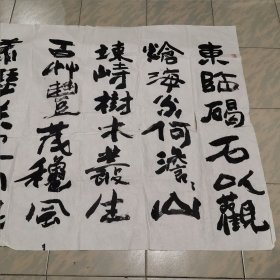 東臨碣石以觀
滄海水何澹〻山
㠀竦峙樹木叢生
百艸豐茂穐風
蕭瑟